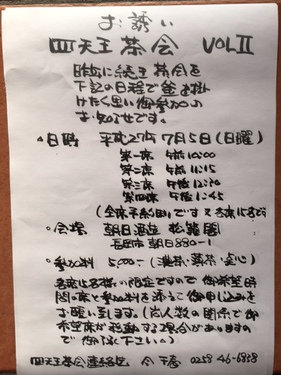 お誘い
四天王茶会 VOLⅡ
昨年に続き茶会を
下記の日程で釜お掛
けたく思い御参加の
お知らせです。
・日時 平成27年7月5日(日曜)
第一席 午前10:00
第二席 午前11:15
第三席 午後12:30
第四席 午後1:45
・会場 朝日酒造 松籟閣
長岡市朝日880-1
・参加料 5,000-
の限定ですので御希望時
間の席と参加料を添えて御申し込みを
お願い致します。(尚人数の関係で御
希望席が移動する場合がありますの
で御了承下さい)
四天王茶会連絡先 0258 46-6858